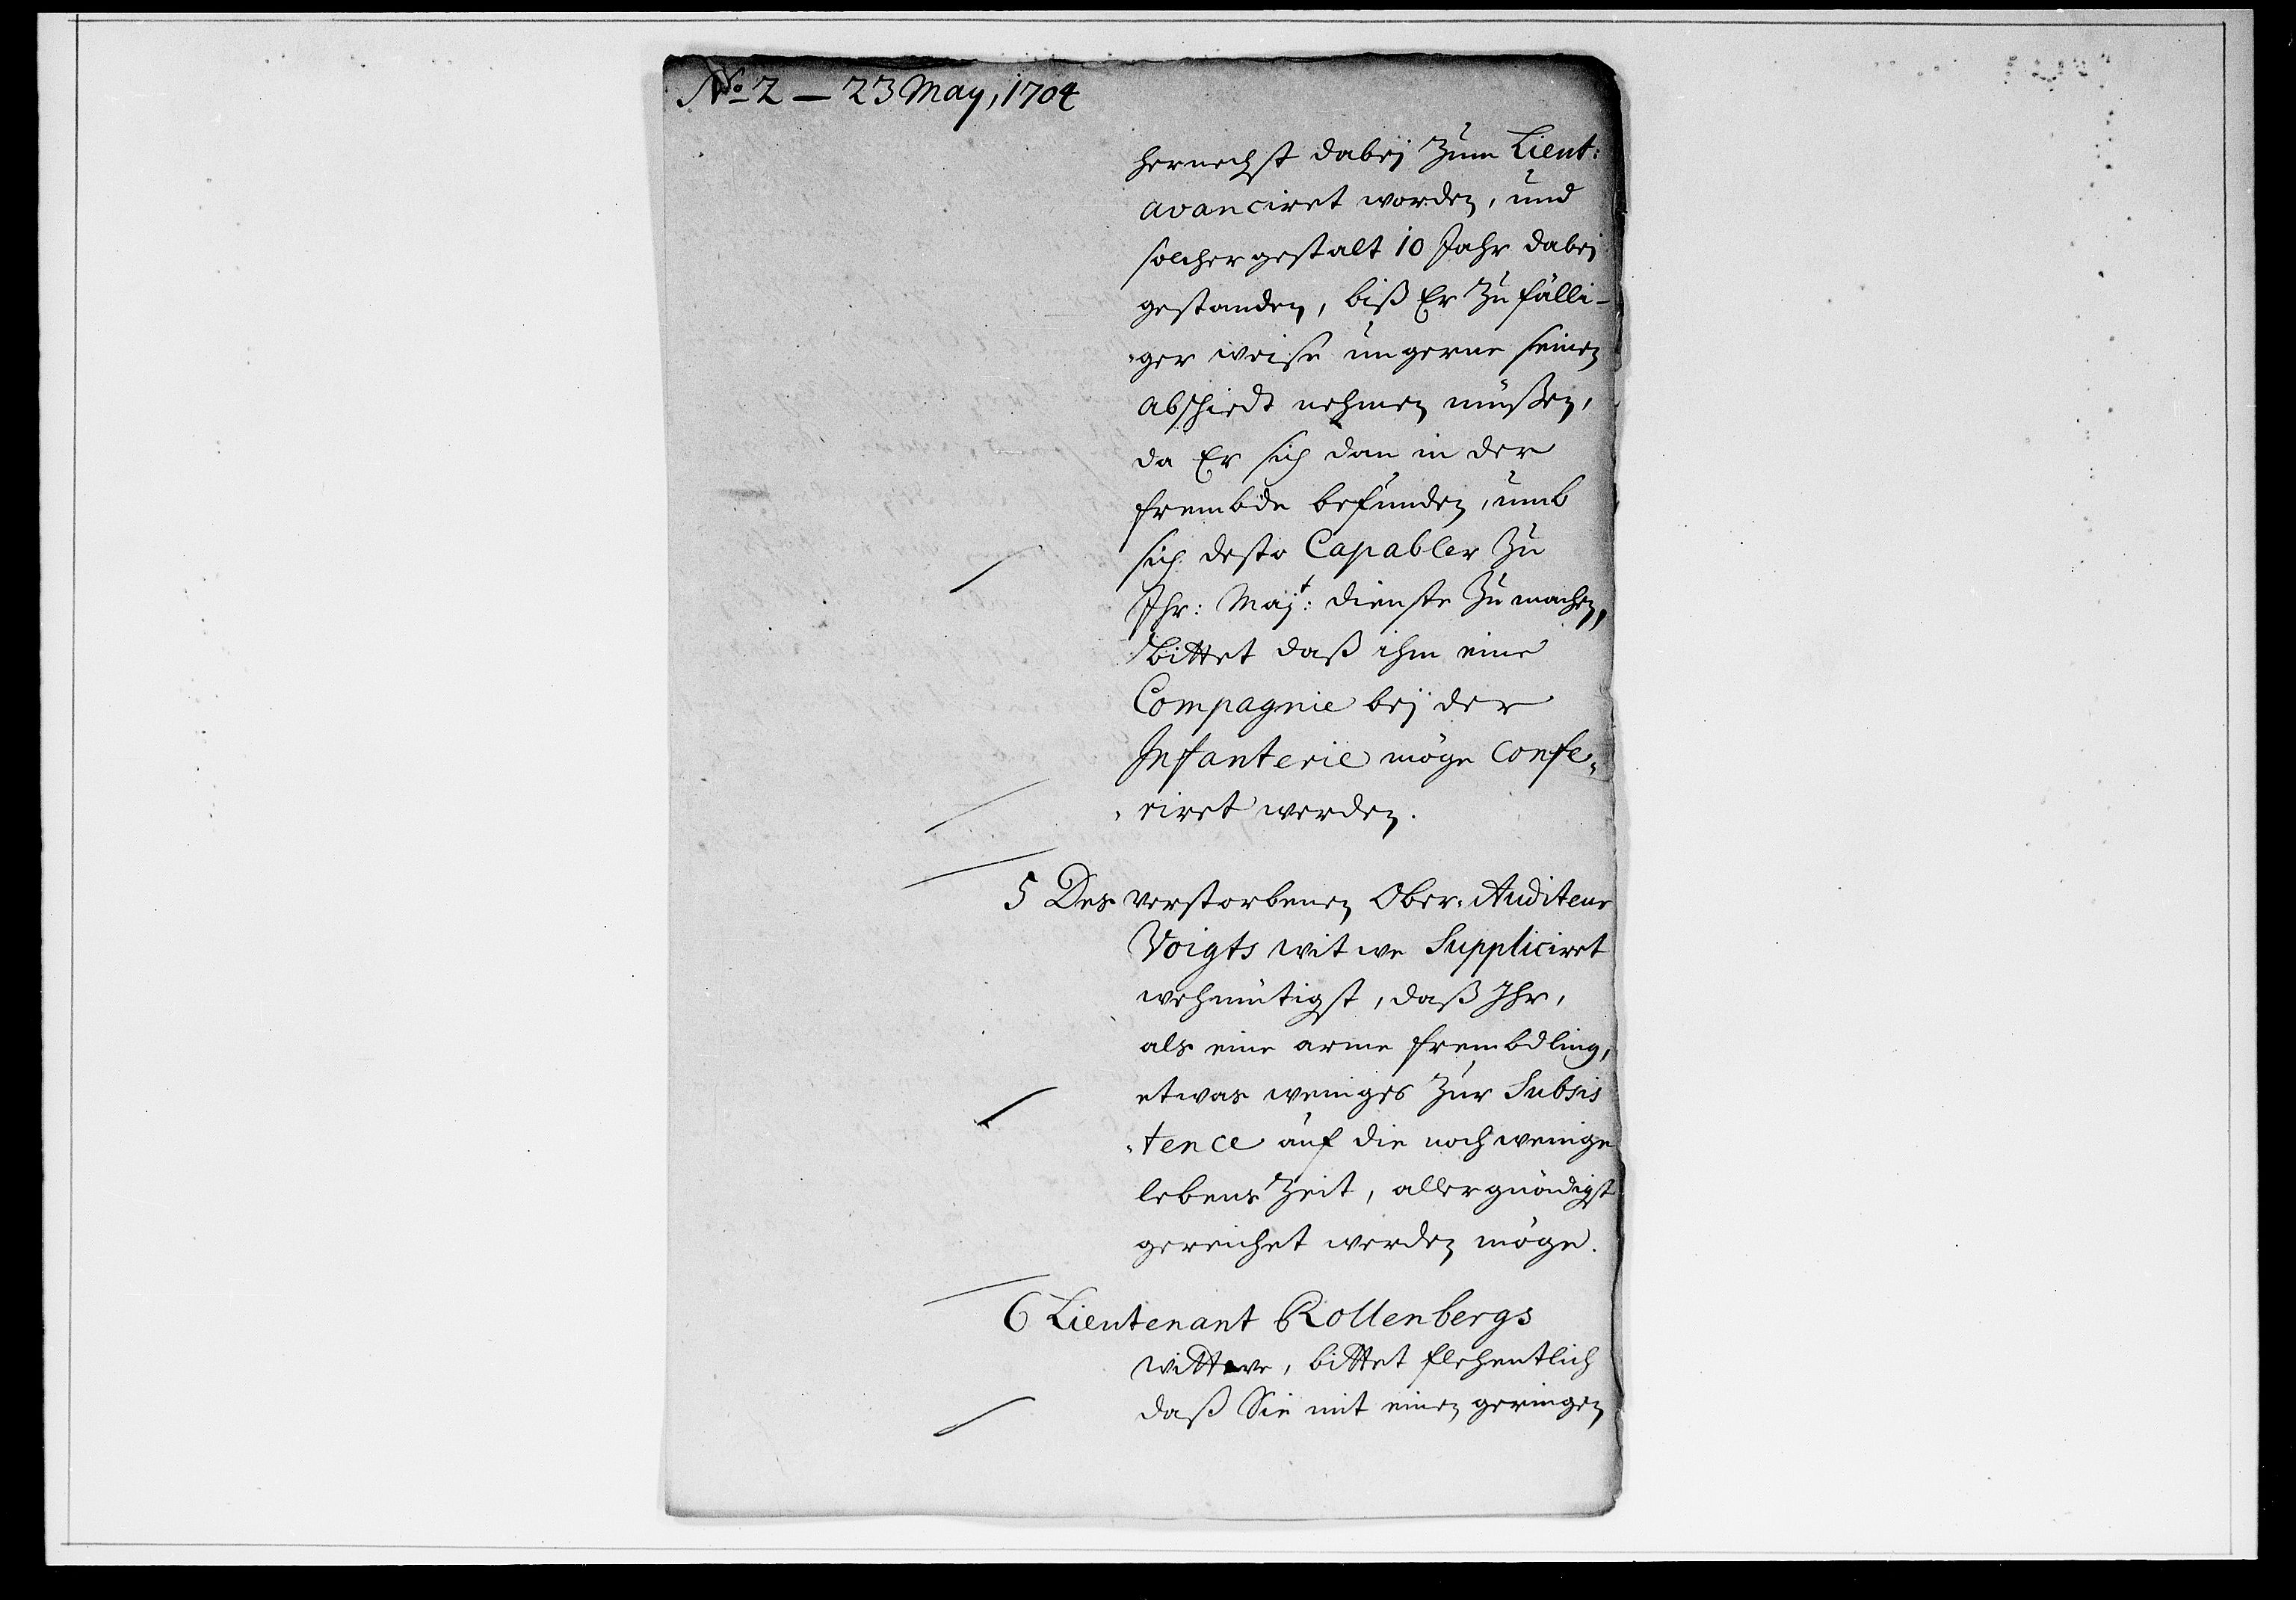 No 2 — 23 May, 1704
hernechst dabej zum Lieut:
avanciret worden, und
solchergestalt 10 Jahr dabej
gestanden, biß Er zufälli-
ger weise ungerne seinen
abschiedt nehmen müßen,
da Er sich dan in der
frembde befunden, umb
sich desto Capabler zu
Ihr: Majt: dienste zu machen,
bittet daß ihm eine
Compagnie beÿ der
Infanterie möge confe-
riret werden.
5 Des verstorbenen Ober-Auditeur
Voigts witwe Suppliciret
wehmütigst, daß Ihr,
als eine arme frembdling,
etwas weniges zur Subsis
tence auf die noch wenige
lebens Zeit, allergnädigst
gereichet werden möge.
6 Lieutenant Rollenbergs
wittwe, bittet flehentlich
daß Sie mit einen geringen